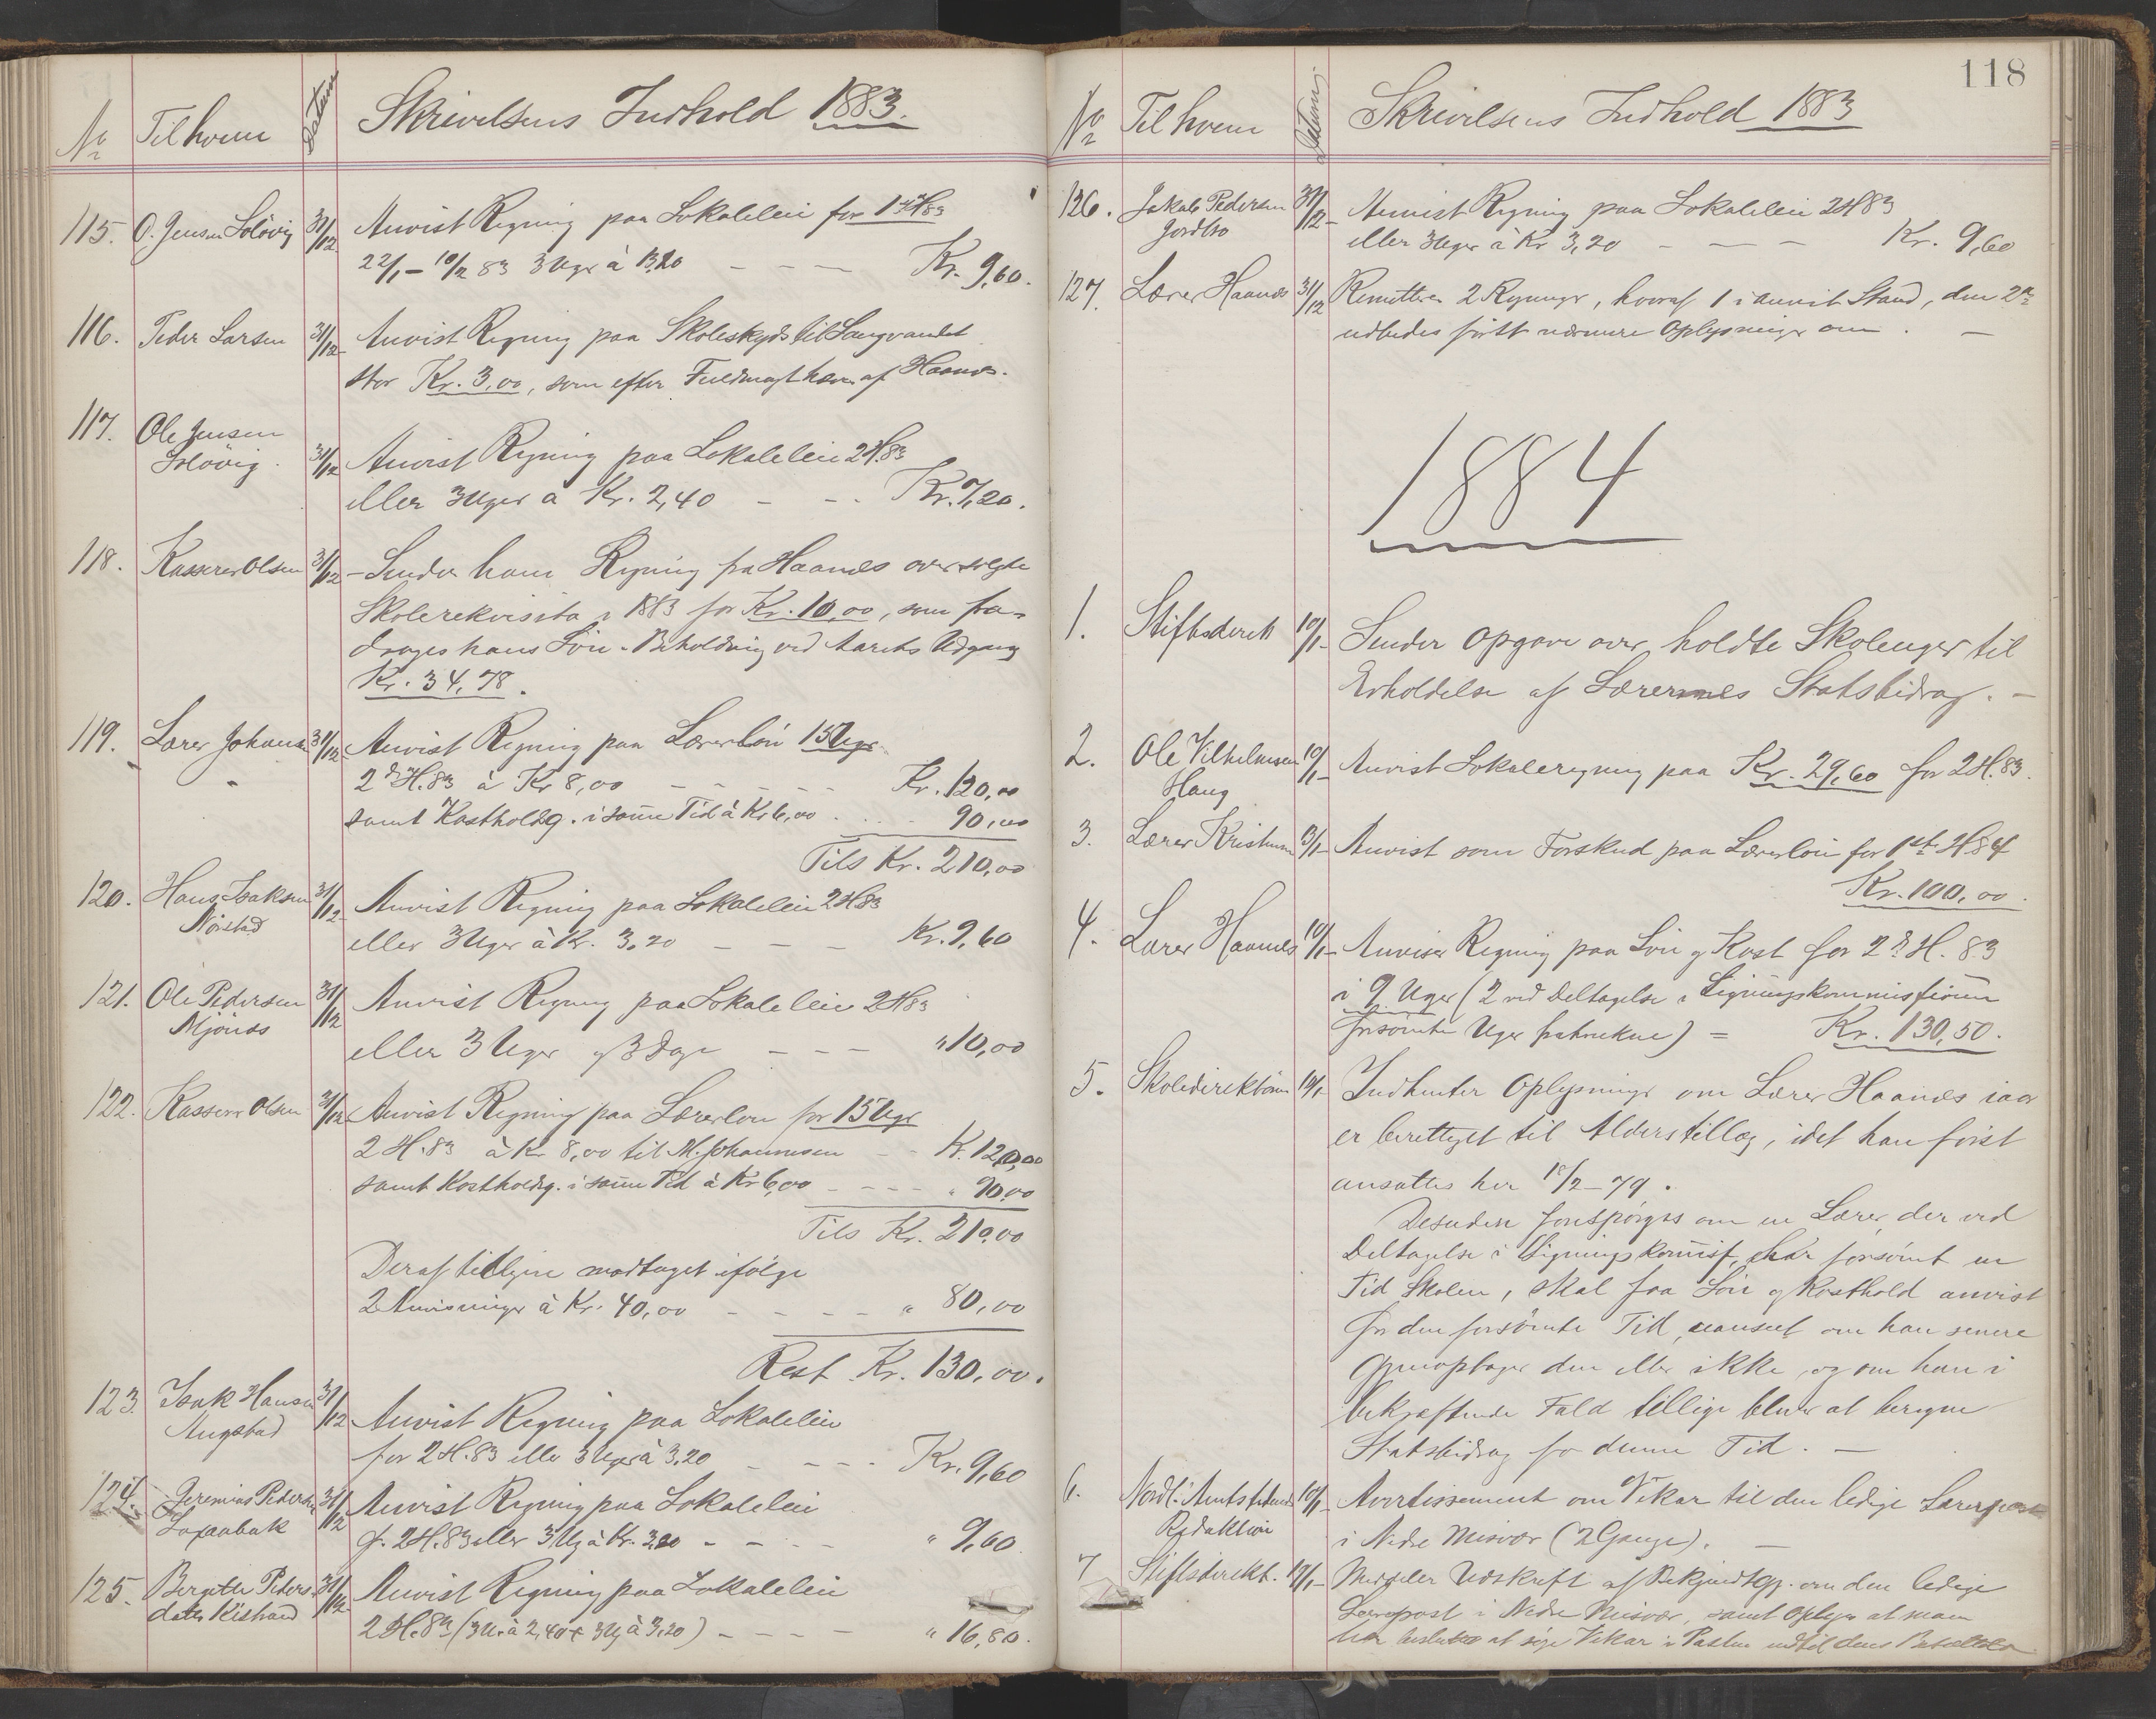 No Til hvem Datum Skrivelsens Indhold 1883.
115. O. Jensen Solövig 31/12 Anvist Regning paa Lokaleleie for 1ste H 83
22/1 - 10/2 83 3 Uger à 3,20 - - - Kr. 9,60.
116. Peder Larsen 31/12 Anvist Regning paa Skoleskyds til Langvandet
stor Kr. 3,00, som efter Fuldmagt hæves af Haanes.
117. Ole Jensen
Solövig. 31/12 Anvist Regning paa Lokaleleie 2 H. 83
eller 3 Uger à Kr. 2,40 - - - Kr. 7,20.
118. Kasserer Olsen 31/12 - Sender ham Regning fra Haanes over solgte
Skolerekvisita i 1883 for Kr. 10,00, som fra-
drages hans Lön. Beholdning ved Aarets Udgang
Kr. 34,78.
119. Lærer Johansen 31/12 Anvist Regning paa Lærerlön 15 Uger
2den H. 83 à Kr 8,00 - - - - Kr. 120,00
samt Kostholdsg. i samme Tid à Kr 6,00 . . . . 90,00
Tils Kr. 210,00
120. Hans Isaksen
Nörstad 31/12 Anvist Regning paa Lokaleleie 2 H 83
eller 3 Uger à Kr. 3,20 - - - Kr. 9,60
121. Ole Pedersen
Mjönes 31/12 Anvist Regning paa Lokaleleie 2 H 83
eller 3 Uger og 3 Dage - - - " 10,00
122. Kasserer Olsen 31/12 Anvist Regning paa Lærerlön for 15 Uger
2 H. 83 à Kr 8,00 til M. Johannesen - - K. 120,00
samt Kostholdsg. i samme Tid à Kr 6,00 - - - - " 90,00
Tils Kr. 210,00
Deraf tidligere modtaget ifölge
2 Anvisninger à Kr. 40,00 - - - - " 80,00
Rest Kr. 130,00.
123. Isak Hansen
Angstad 31/12 Anvist Regning paa Lokaleleie
for 2 H. 83 eller 3 Uger à 3,20 - - - - Kr. 9,60
124. Jeremias Pedersen
31/12 Anvist Regning paa Lokaleleie
f. 2 H. 83 eller 3 Ug à Kr. 3,20 - - - - " 9,60
125. Bergitte Peders-
datter Kistrand 31/12 Anvist Regning paa Lokaleleie
2 H. 83 (3 U. à 2,40 + 3 Ug à 3,20) - - - - " 16,80.
118
No Til hvem Datum Skrivelsens Indhold 1883
126. Jakob Pedersen
Jordbro 31/12 - Anvist Regning paa Lokaleleie 2 H 83
eller 3 Uger à Kr 3,20 - - - Kr. 9,60
127. Lærer Haanes 31/12 Remitterer 2 Regninger, hvoraf 1 i anvist Stand, den 2den
udbedes först nærmere Oplysninger om. -
1884
1. Stiftsdirek 10/1 - Sender Opgave over holdte Skoleuger til
Erholdelse af Lærernes Statsbidrag. -
2. Ole Vilhelmsen
Haug 10/1 - Anvist Lokaleregning paa Kr. 29,60 for 2 H. 83.
3. Lærer Kristensen 13/1 - Anvist som Forskud paa Lærerlön for 1ste H 84
Kr. 100,00.
4. Lærer Haanes 10/1 - Anviser Regning paa Lön og Kost for 2d H. 83
i 9 Uger (2 ved Deltagelse i Ligningskommissionen
forsömte Uger fratrukne) = Kr. 130,50.
5. Skoledirektören 10/1 - Indhenter Oplysninger om Lærer Haanes iaar
er berettiget til Alderstillæg, idet han först
ansattes her 18/2 - 79.
Desuden forespörges om en Lærer, der ved
Deltagelse i Ligningskommiss. har forsömt en
Tid Skolen, skal faa Lön og Kosthold anvist
for den forsömte Tid, uanset om han senere
gjenoptager den eller ikke, og om han i
bekræftende Fald tillige bliver at beregne
Statsbidrag for denne Tid. -
6. Nordl. Amtstidende
Redaktion 10/1 - Avertissement om Vikar til den ledige Lærerpost
i Nedre Misvær (2 Gange). -
7 Stiftsdirekt. 19/1 - Meddeler Udskrift af Bekjendtgj. om den ledige
Lærerpost i Nedre Misvær, samt Oplyser at man
har besluttet at söge Vikar i Posten indtil dens Besættelse